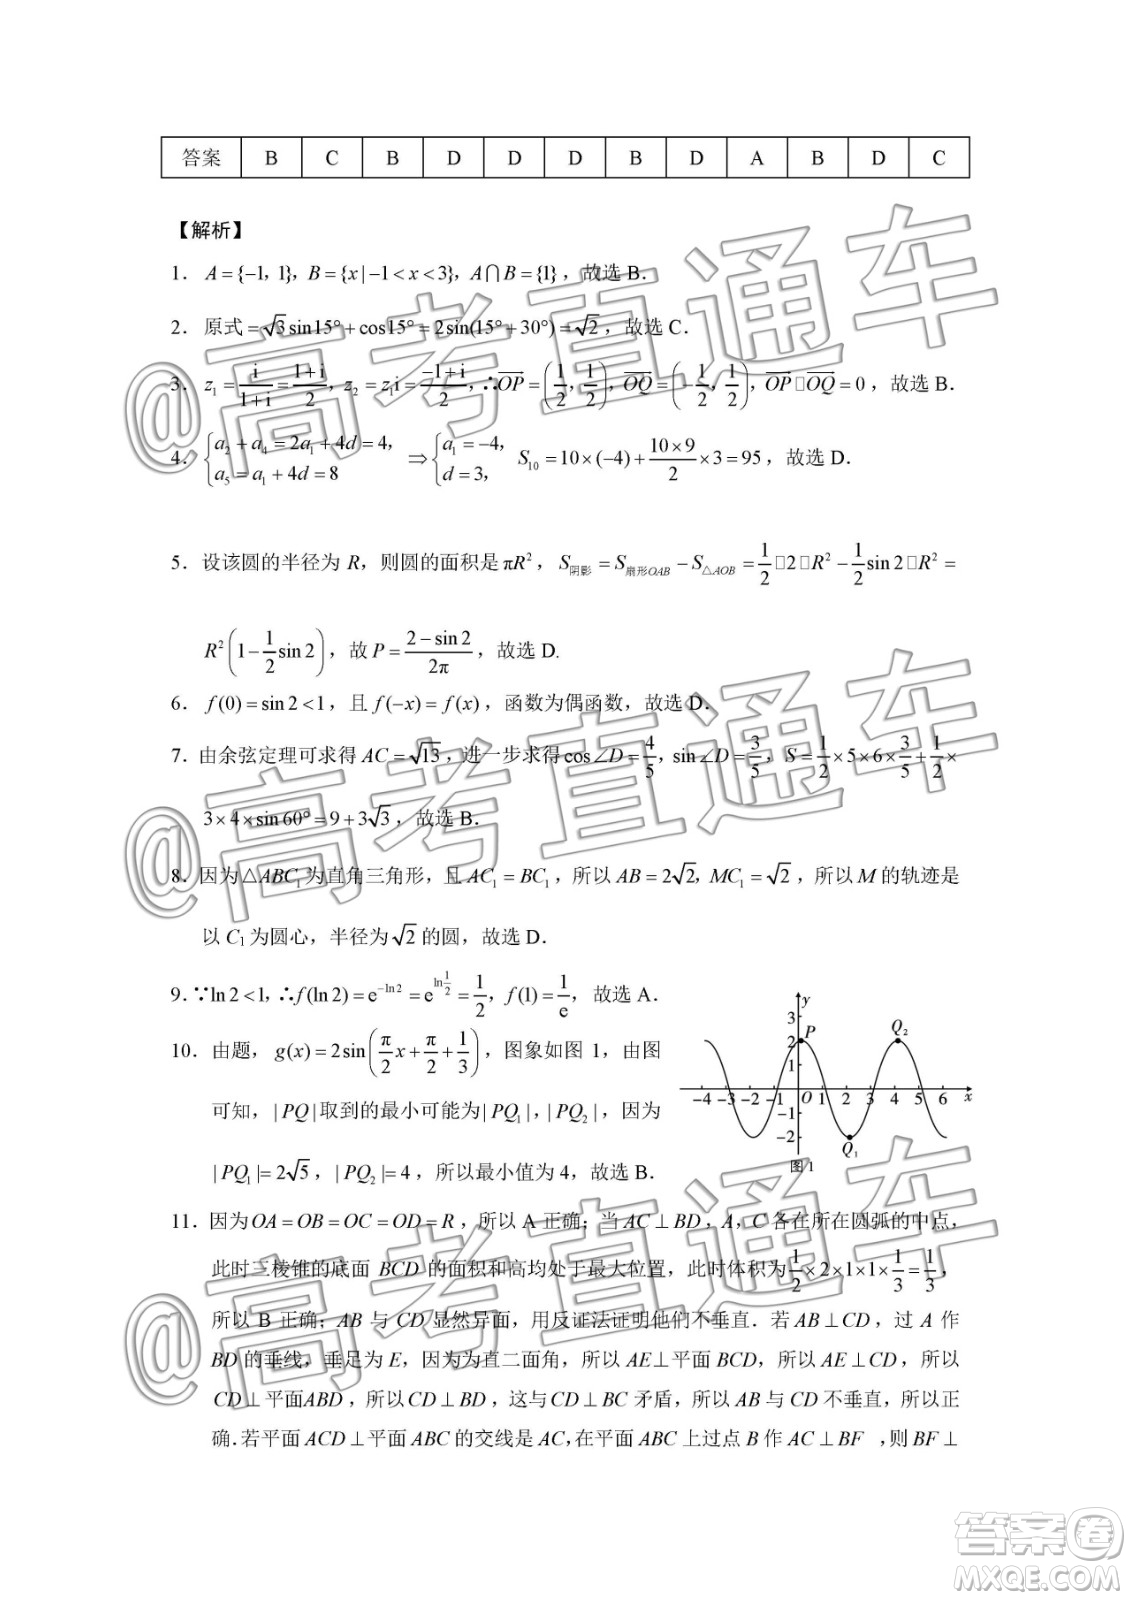 答案 B C B D D D B D A B D C
【解析】
1．A={−1，1}，B={x|−1<x<3}，A∩B={1}，故选 B．
2．原式=√3sin15°+cos15°=2sin(15°+30°)=√2，故选 C．
3．z₁=i/(1+i)=(1+i)/2，z₂=z₁i=(−1+i)/2，∴OP→=(1/2，1/2)，OQ→=(−1/2，1/2)，OP→□OQ→=0，故选 B．
4．{a₂+a₄=2a₁+4d=4， a₅=a₁+4d=8 ⇒ {a₁=−4， d=3， S₁₀=10×(−4)+(10×9)/2×3=95，故选 D．
5．设该圆的半径为 R，则圆的面积是πR²，S阴影=S扇形OAB−S△AOB=1/2□2□R²−1/2sin2□R²=
R²(1−1/2sin2)，故 P=(2−sin2)/2π，故选 D.
6．f(0)=sin2<1，且 f(−x)=f(x)，函数为偶函数，故选 D．
7．由余弦定理可求得 AC=√13，进一步求得cos∠D=4/5，sin∠D=3/5，S=1/2×5×6×3/5+1/2×
3×4×sin60°=9+3√3，故选 B．
8．因为△ABC₁为直角三角形，且 AC₁=BC₁，所以 AB=2√2，MC₁=√2，所以 M 的轨迹是
以 C₁为圆心，半径为√2的圆，故选 D．
9．∵ln2<1，∴f(ln2)=e^(−ln2)=e^(ln 1/2)=1/2，f(1)=1/e，故选 A．
10．由题，g(x)=2sin(π/2 x+π/2+1/3)，图象如图 1，由图
可知，|PQ|取到的最小可能为|PQ₁|，|PQ₂|，因为
|PQ₁|=2√5，|PQ₂|=4，所以最小值为 4，故选 B．
y
3
2 P Q₂
1
−4 −3 −2 −1 O 1 2 3 4 5 6 x
−1
−2 Q₁
图 1
11．因为OA=OB=OC=OD=R，所以 A 正确；当 AC⊥BD，A，C 各在所在圆弧的中点，
此时三棱锥的底面 BCD 的面积和高均处于最大位置，此时体积为1/2×2×1×1×1/3=1/3，
所以 B 正确；AB 与 CD 显然异面，用反证法证明他们不垂直．若 AB⊥CD，过 A 作
BD 的垂线，垂足为 E，因为为直二面角，所以 AE⊥平面 BCD，所以 AE⊥CD，所以
CD⊥平面ABD，所以 CD⊥BD，这与 CD⊥BC 矛盾，所以 AB 与 CD 不垂直，所以正
确.若平面 ACD⊥平面 ABC 的交线是 AC，在平面 ABC 上过点 B 作 AC⊥BF ，则 BF⊥
@高考直通车
@高考直通车
@高考直通车
答案卷
MXQE.COM